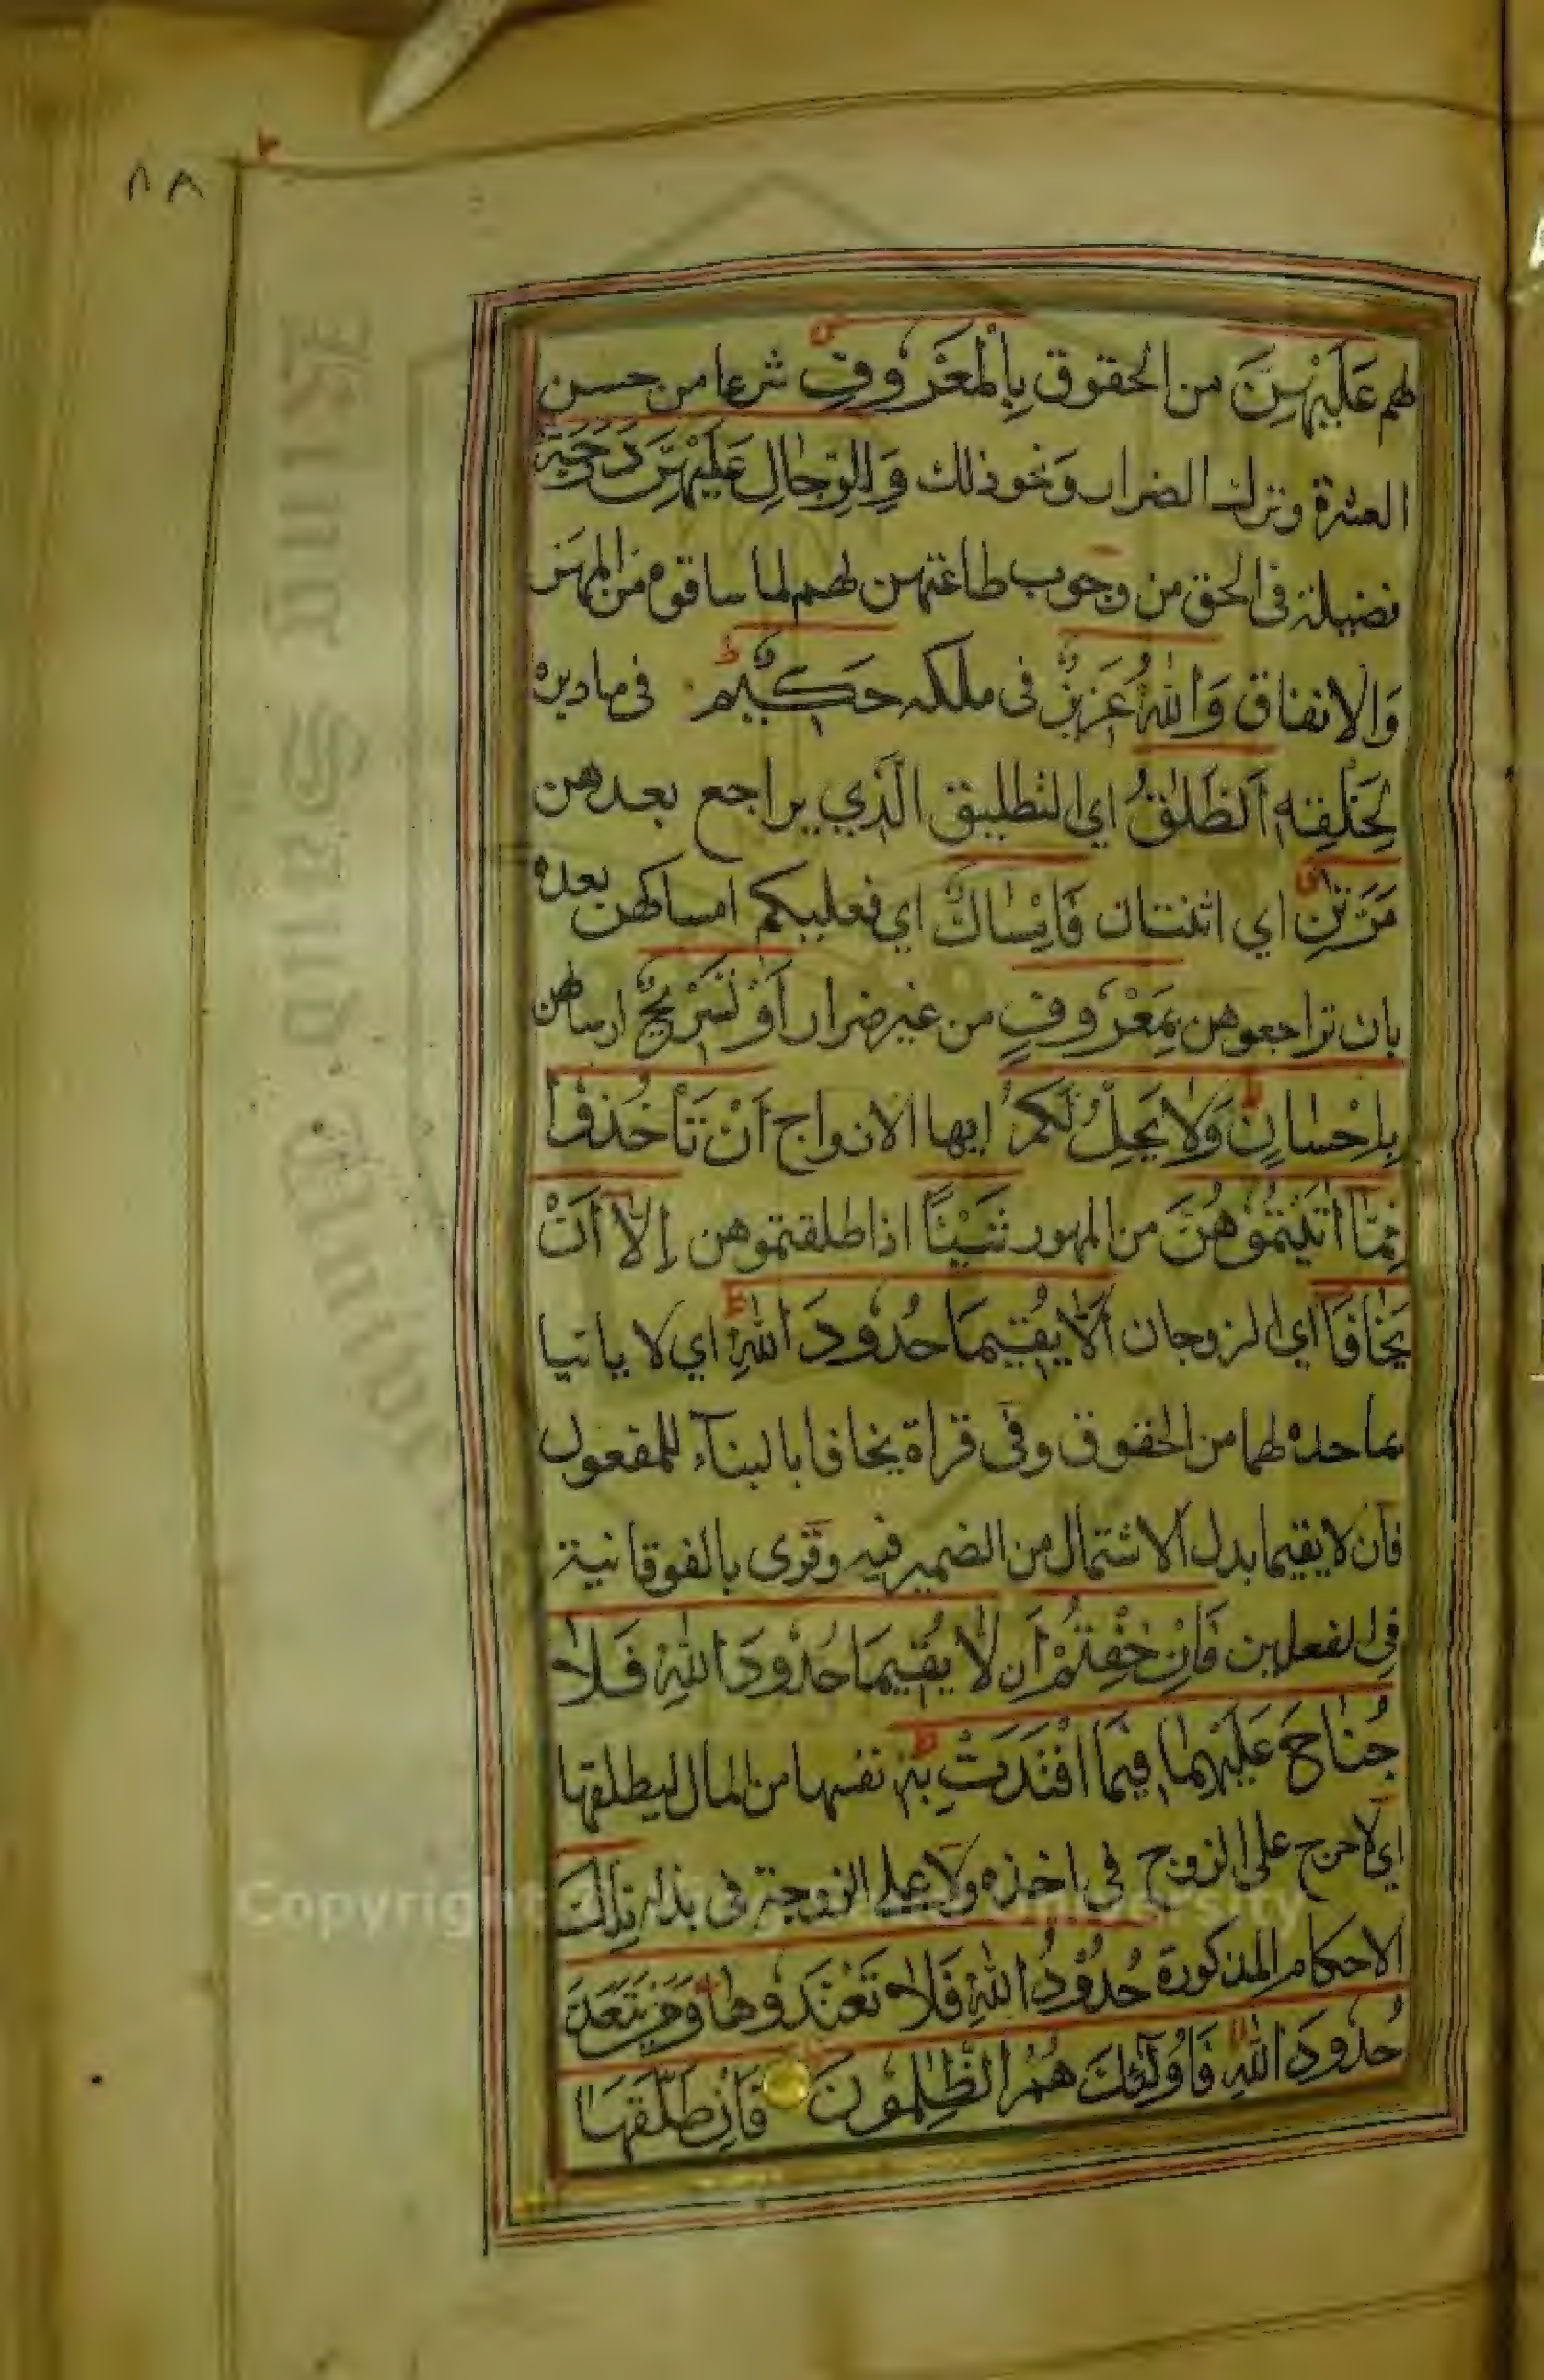 ٨٨
لهم عَلَيْهِنَّ من الحقوق بِالْمَعْرُوفِ شرعا من حسن
العشرة وترك الضرار وَنحو ذلك وَلِلرِّجَالِ عَلَيْهِنَّ دَرَجَةٌ
فضيلة فى الحق من وجوب طاعتهن لهم لما ساقوه من المهر
وَالانفاق وَاللهُ عَزِيزٌ فى ملكه حَكِيْمٌ فى ما دبره
لِخَلْقِه اَلطَّلٰقُ اي التطليق الَّذي يراجع بعد هن
مَرَّتٰنِ اي اثنتان فَاِمْسَاكٌ اي فعليكم امساكهن بعده
بان تراجعوهن بِمَعْرُوفٍ من غير ضرار اَوْ تَسْرِيْحٌ ارساهن
بِاِحْسَانٍ وَلَا يَحِلُّ لَكُمْ ايها الازواج اَنْ تَأْخُذُوْا
مِمَّا اٰتَيْتُمُوْهُنَّ من المهور شَيْئًا اذا طلقتموهن اِلَّا اَنْ
يَخَافَا اي الزوجان اَلَّا يُقِيْمَا حُدُودَ اللهِ اي لا ياتيا
بما حده لهما من الحقوق وفى قراة يخافا بالبنآء للمفعول
فان لا يقيما بدل الاشتمال من الضمير فيه وقرى بالفوقانية
فى الفعلين فَاِنْ خِفْتُمْ اَن لَا يُقِيْمَا حُدُودَ اللهِ فَلَا
جُنَاحَ عَلَيْهِمَا فِيْمَا افْتَدَتْ بِهٖ نفسها من المال ليطلقها
اي لا حرج على الزوج في اخذه ولا على الزوجة فى بذله تِلْكَ
الاحكام المذكورة حُدُوْدُ اللهِ فَلَا تَعْتَدُوهَا وَمَنْ يَتَعَدَّ
حُدُودَ اللهِ فَاُولٰٓئِكَ هُمُ الظّٰلِمُوْنَ فَاِنْ طَلَّقَهَا